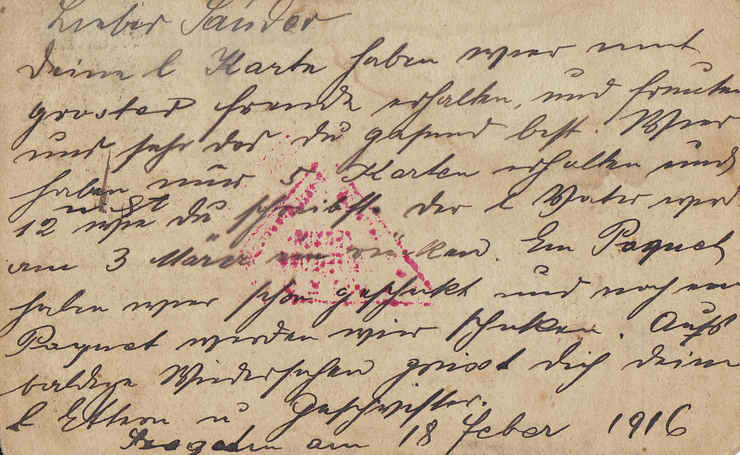 Lieber Sándor
Deine l Karte haben wier mit
groster freude erhalten, und freuten
uns sehr das du gesund bist. Wier
haben nur 5 Karten erhalten und
nicht
12 wie du schreibst. der l Vater wird
am 3 März ein rücken. Ein Paquet
haben wier schon geschikt und noch ein
Paquet werden wier schiken. Aufs
baldige Wiedersehen grüsst dich deine
l Eltern u Geschwister.
am 18 Feber 1916